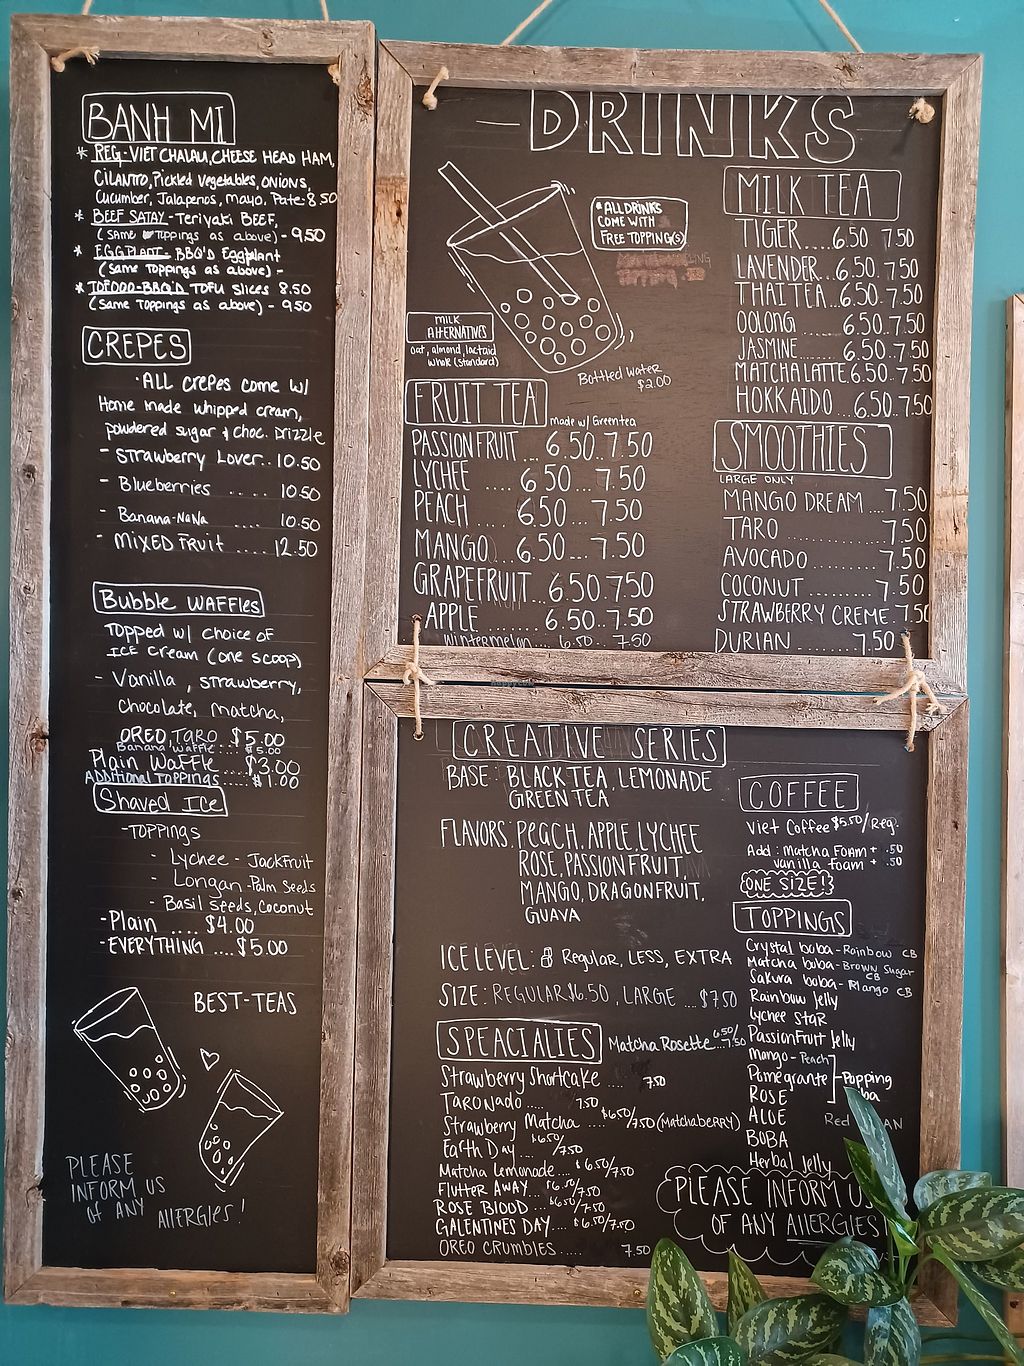 BANH MI
* REG-VIET CHALAU, CHEESE HEAD HAM,
CILANTRO, Pickled vegetables, ONIONS,
Cucumber, Jalapenos, mayo, Pate-8.50
* BEEF SATAY-Teriyaki BEEF,
(SAME Toppings as above) - 9.50
* EGGPLANT- BBQ'D Eggplant
(Same Toppings as above) -
* TOFOOO-BBQ'D TOFU Slices 8.50
(Same Toppings as above) - 9.50
CREPES
·ALL crepes come w/
Home made whipped cream,
powdered sugar & Choc. Drizzle
- Strawberry Lover..10.50
- Blueberries ....10.50
- Banana-NaNa ....10.50
- MIXED FRUIT ....12.50
Bubble WAFFles
TOPPED w/ Choice of
ICE cream (one scoop)
- Vanilla, Strawberry,
Chocolate, matcha,
OREO, TARO $5.00
Banana Waffle..$5.00
Plain Waffle ....$3.00
Additional Toppings.....$1.00
Shaved Ice
-TOPPINGS
- Lychee - JackFruit
- Longan-Palm Seeds
- Basil Seeds, Coconut
-Plain ....$4.00
-EVERYTHING ....$5.00
BEST-TEAS
PLEASE
INFORM US
OF ANY AllERGIES!
DRINKS
*ALL DRINKS
COME WITH
FREE TOPPING(S)
MILK
ALTERNATIVES
Oat, almond, lactaid
whole (standard)
Bottled water
$2.00
FRUIT TEA
made w/ Green tea
PASSIONFRUIT...6.50..7.50
LYCHEE .... 6.50...7.50
PEACH .....6.50..7.50
MANGO...6.50...7.50
GRAPEFRUIT..6.50.7.50
APPLE .....6.50..7.50
Wintermelon....6.50..7.50
MILK TEA
TIGER....6.50 7.50
LAVENDER..6.50..7.50
THAI TEA..6.50..7.50
OOLONG ......6.50.7.50
JASMINE........6.50..7.50
MATCHA LATTE.6.50..7.50
HOKKAIDO...6.50..7.50
SMOOTHIES
LARGE ONLY
MANGO DREAM....7.50
TARO............7.50
AVOCADO.......7.50
COCONUT........7.50
STRAWBERRY CREME.7.50
DURIAN.........7.50
CREATIVE SERIES
BASE: BLACK TEA, LEMONADE
GREEN TEA
FLAVORS: PEACH, APPLE, LYCHEE
ROSE, PASSIONFRUIT,
MANGO, DRAGONFRUIT,
GUAVA
ICE LEVEL: Regular, LESS, EXTRA
SIZE: REGULAR $6.50, LARGE ....$7.50
SPEACIALIES
Matcha Rosette...6.50/7.50
Strawberry Shortcake .... 7.50
TARONado ..... 7.50
Strawberry Matcha ....$6.50/7.50 (MatchabERRY)
Earth Day ...$6.50/7.50
Matcha Lemonade....$6.50/7.50
FlUTTER AWAY...$6.50/7.50
ROSE BlOOD ...$6.50/7.50
GALENTINES DAY....$6.50/7.50
OREO CRUMBLES..... 7.50
COFFEE
Viet Coffee $5.50/Reg.
Add: Matcha Foam + .50
vanilla foam + .50
ONE SIZE!
TOPPINGS
Crystal boba-Rainbow CB
Matcha boba-Brown Sugar CB
Sakura boba-Mango CB
Rainbow Jelly
lychee Star
PassionFruit Jelly
Mango-Peach
Pomegrante
ROSE
Popping
AlOE
BOBA
Herbal Jelly
Red
PLEASE INFORM US
OF ANY AllERGIES!